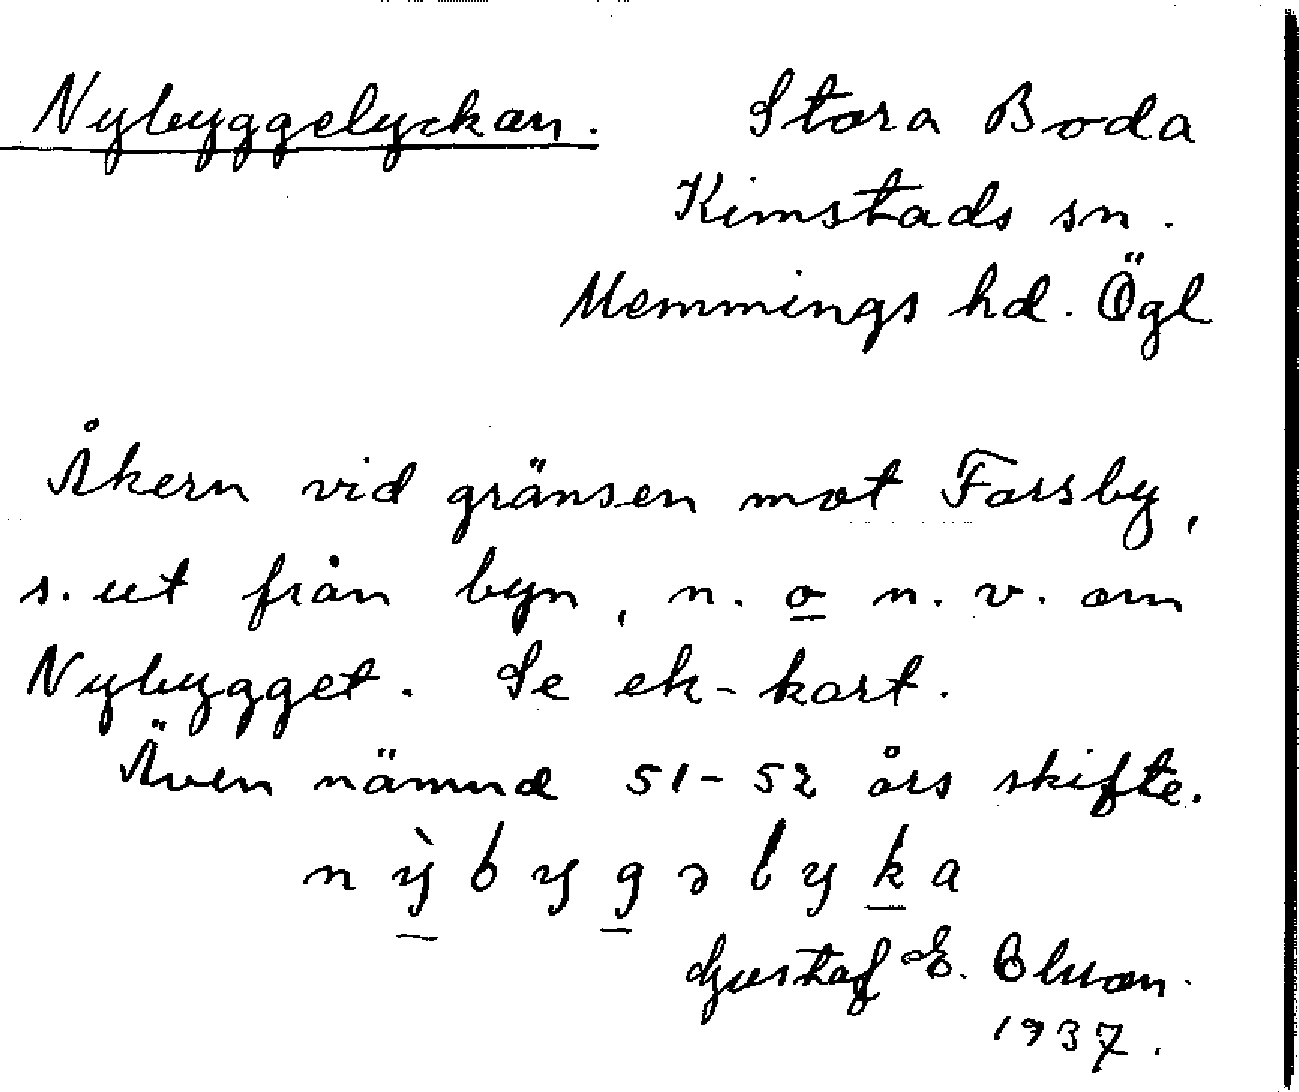 Nybyggelyckan. Stora Boda
Kimstads sn.
Memmings hd. Ögl
Åkern vid gränsen mot Forsby,
s. ut från byn, n. o n. v. om
Nybygget. Se ek-kart.
Även nämnd 51-52 års skifte.
nỳbygəlyka
Gustaf E.
1937.